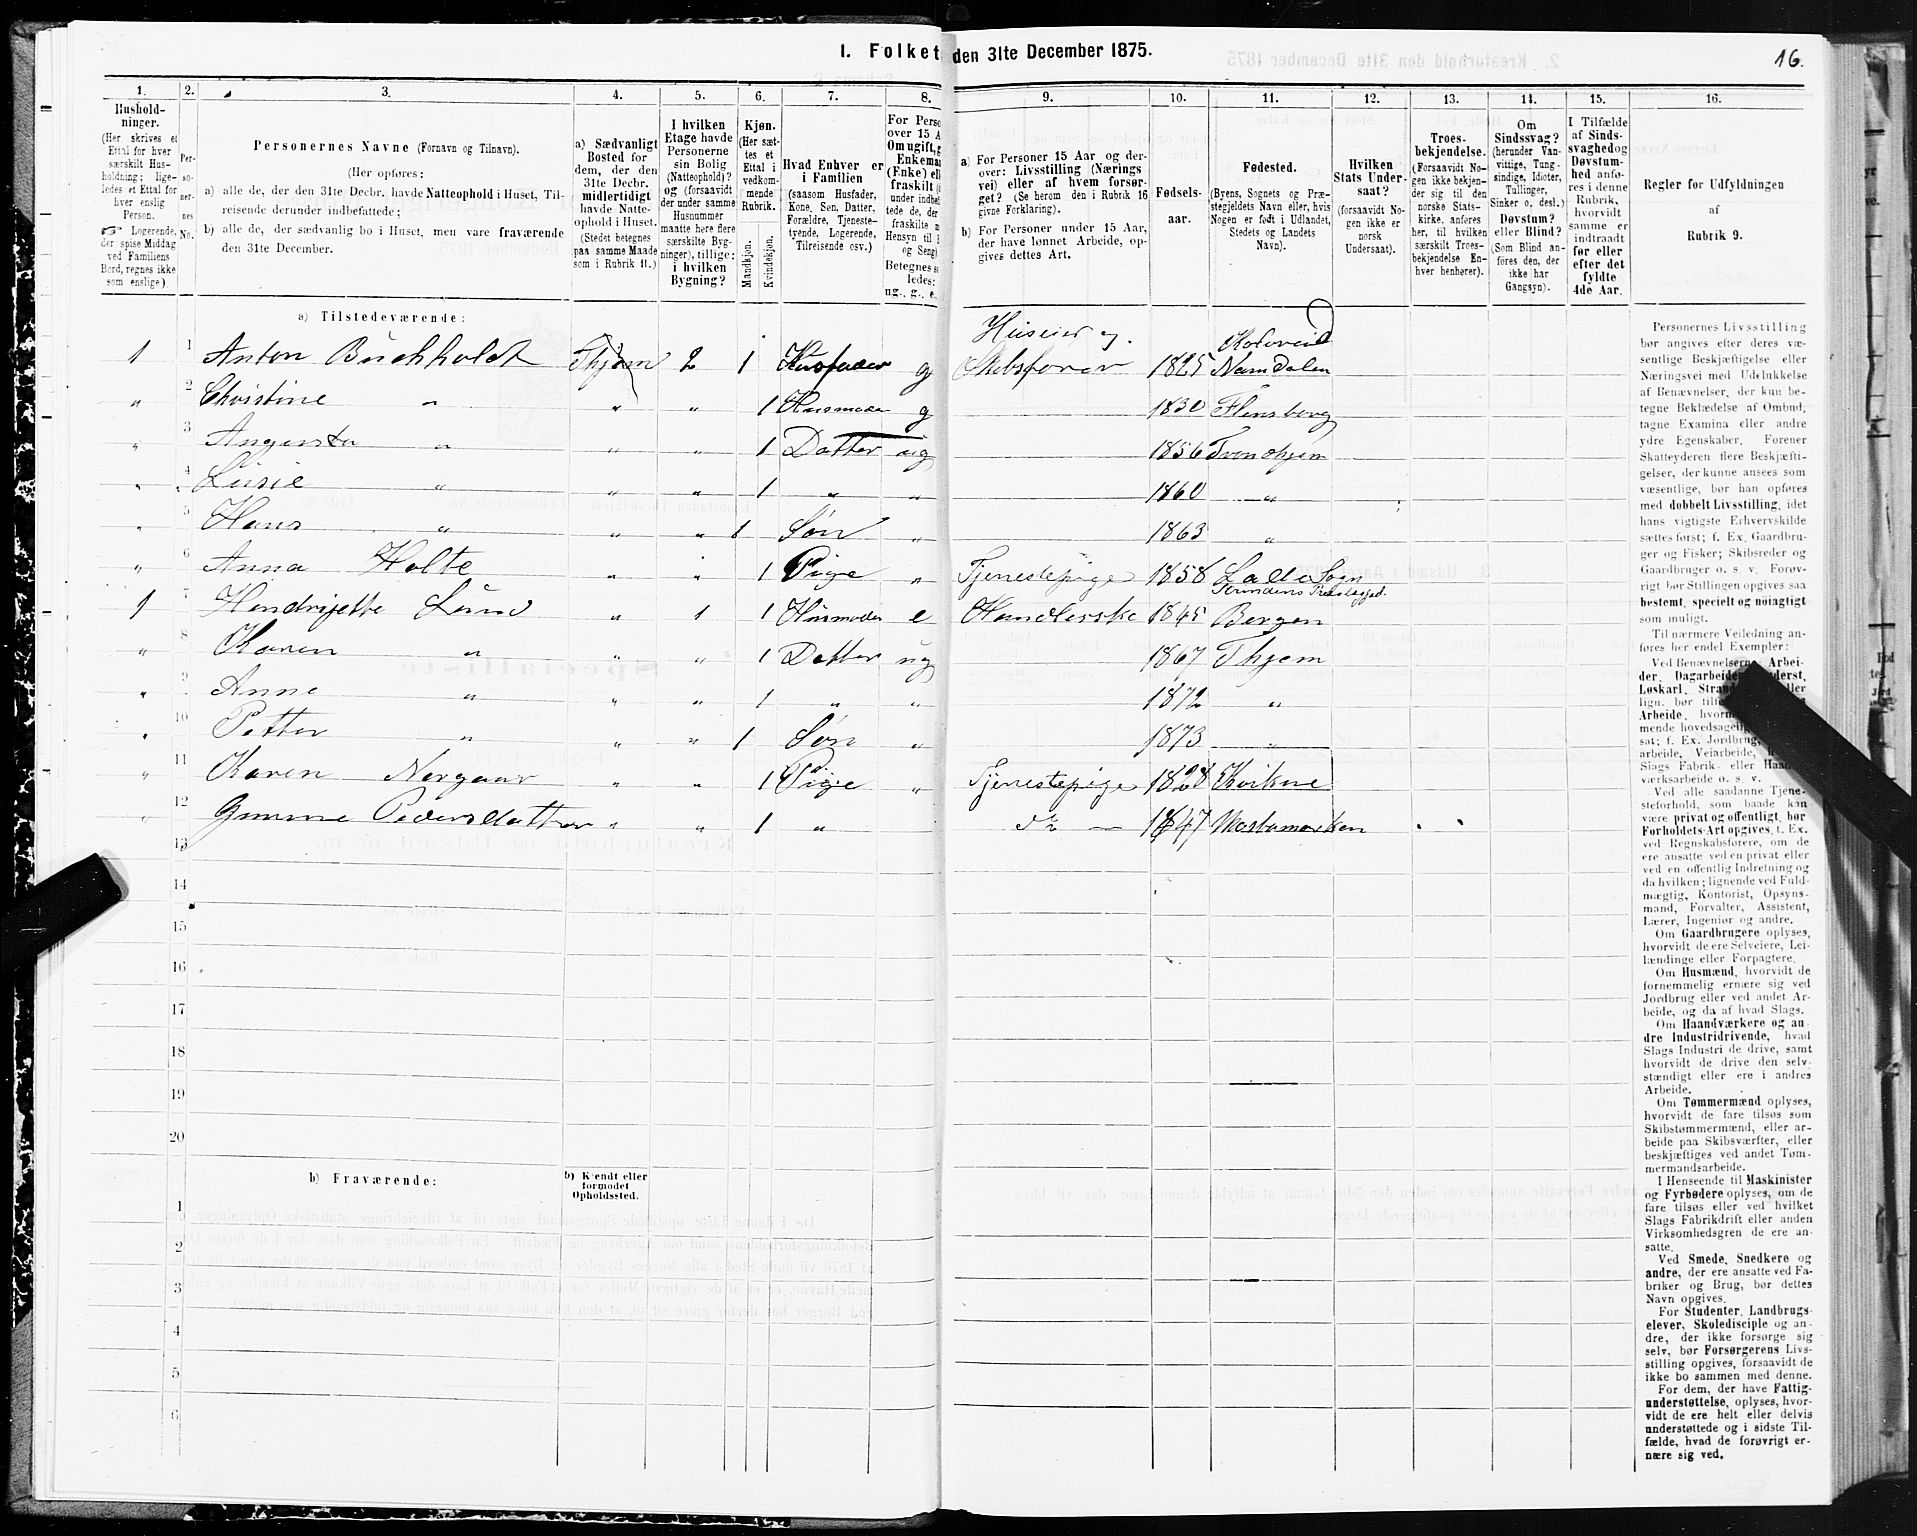 I. Folket den 31te December 1875.
16.
1. 2. 3. 4. 5. 6. 7. 8. 9. 10. 11. 12. 13. 14. 15. 16.
Husholdninger.
(Her skrives et Ettal for hver særskilt Husholdning; ligeledes et Ettal for hver enslig Person.
☞ Logerende, der spise Middag ved Familiens Bord, regnes ikke som enslige).
Personernes No.
Personernes Navne (Fornavn og Tilnavn).
(Her opføres:
a) alle de, der den 31te Decbr. havde Natteophold i Huset, Tilreisende derunder indbefattede;
b) alle de, der sædvanlig bo i Huset, men vare fraværende den 31te December.
a) Sædvanligt Bosted for dem, der den 31te Decbr. midlertidigt havde Natteophold i Huset.
(Stedet betegnes paa samme Maade som i Rubrik 11.)
I hvilken Etage havde Personerne sin Bolig (Natteophold)? og (forsaavidt der under samme Husnummer maatte høre flere særskilte Bygninger), tillige: i hvilken Bygning?
Kjøn.
(Her sættes et Ettal i vedkommende Rubrik.
Mandkjøn. Kvindekjøn.
Hvad Enhver er i Familien
(saasom Husfader, Kone, Søn, Datter, Forældre, Tjenestetyende, Logerende, Tilreisende osv.)
For Perso
over 15 A
Om ugift, g
Enkeman
(Enke) ell
fraskilt (
a) For Personer 15 Aar og derover: Livsstilling (Næringsvei) eller af hvem forsørget? (Se herom den i Rubrik 16 givne Forklaring).
b) For Personer under 15 Aar, der have lønnet Arbeide, opgives dettes Art.
Fødselsaar.
Fødested.
(Byens, Sognets og Præstegjeldets Navn eller, hvis Nogen er født i Udlandet, Stedets og Landets Navn).
Hvilken Stats Undersaat?
(forsaavidt Nogen ikke er norsk Undersaat).
Troesbekjendelse.
(Forsaavidt Nogen ikke bekjender sig til den norske Statskirke, anføres her, til hvilken særskilt Troesbekjendelse Enhver henhører).
Om Sindssvag?
(herunder Vanvittige, Tungsindige, Idioter, Tullinger, Sinker o. desl.)
Døvstum? eller Blind?
(Som Blind anføres den, der ikke har Gangsyn).
I Tilfælde af Sindssvaghed og Døvstumhed anføres i denne Rubrik, hvorvidt samme er indtraadt før eller efter det fyldte 4de Aar.
Regler for Udfyldningen af Rubrik 9.
a) Tilstedeværende:
1 1 Anton Buchholdt Thjem 2 1 Husfader g Huseier og Skibsfører 1825 Kolvereid Namdalen
" 2 Christine " " " 1 Husmoder g 1830 Flensborg
" 3 Augusta " " " 1 Datter ug 1856 Trondhjem
" 4 Lusie " " " 1 " " 1860 "
" 5 Hans " " " 1 Søn " 1863 "
" 6 Anna Holte " " 1 Pige " Tjenestepige 1858 Lade Sogn Strindens Præstegjed.
1 7 Hendrijette Lund " 1 1 Husmoder e Handlerske 1845 Bergen
" 8 Karen " " " 1 Datter ug 1867 Thjem
" 9 Anne " " " 1 " " 1872 "
" 10 Petter " " " 1 Søn " 1873 "
" 11 Karen Norgaar " " 1 Pige " Tjenestepige 1828 Kvikne
" 12 Gunine Pedersdatter " " 1 " do — 1847
13
14
15
16
17
18
19
20
b) Fraværende:
b) Kjendt eller formodet Opholdssted.
1
2
3
4
5
6
Personernes Livsstilling bør angives efter deres væsentlige Beskjæftigelse eller Næringsvei med Udelukkelse af Benævnelser, der kun betegne Beklædelse af Ombud, tagne Examina eller andre ydre Egenskaber. Forener Skatteyderen flere Beskjæftigelser, der kunne ansees som væsentlige, bør han opføres med dobbelt Livsstilling, idet hans vigtigste Erhvervskilde sættes først; f. Ex. Gaardbruger og Fisker; Skibsreder og Gaardbruger o. s. v. Forøvrigt bør Stillingen opgives saa bestemt, specielt og nøiagtigt som muligt.
Til nærmere Veiledning anføres her endel Exempler:
Ved Benævnelserne Arbeider, Dagarbeider
Løskarl, Strand
Ved alle saadanne Tjenesteforhold, som baade kan være privat og offentligt, bør Forholdets Art opgives, t. Ex. ved Regnskabsførere, om de ere ansatte ved en privat eller ved en offentlig Indretning og da hvilken; lignende ved Fuldmægtig, Kontorist, Opsynsmand, Forvalter, Assistent, Lærer, Ingeniør og andre.
Om Gaardbrugere oplyses, hvorvidt de ere Selveiere, Leilændinge eller Forpagtere.
Om Husmænd, hvorvidt de fornemmelig ernære sig ved Jordbrug eller ved andet Arbeide, og da af hvad Slags.
Om Haandværkere og andre Industridrivende, hvad Slags Industri de drive, samt hvorvidt de drive den selvstændigt eller ere i andres Arbeide.
Om Tømmermænd oplyses, hvorvidt de fare tilsøs som Skibstømmermænd, eller arbeide paa Skibsværfter, eller beskjæftiges ved andet Tømmermandsarbeide.
I Henseende til Maskinister og Fyrbødere oplyses, om de fare tilsøs eller ved hvilket Slags Fabrikdrift eller anden Virksomhedsgren de ere ansatte.
Ved Smede, Snedkere og andre, der ere ansatte ved Fabriker og Brug, bør dettes Navn opgives.
For Studenter, Landbrugselever, Skoledisciple og andre, der ikke forsørge sig selv, bør Forsørgerens Livsstilling opgives, forsaavidt de ikke bo sammen med denne.
For dem, der have Fattigunderstøttelse, oplyses, hvorvidt de ere helt eller delvis understøttede og i sidste Tilfælde, hvad de forøvrigt ernære sig ved.